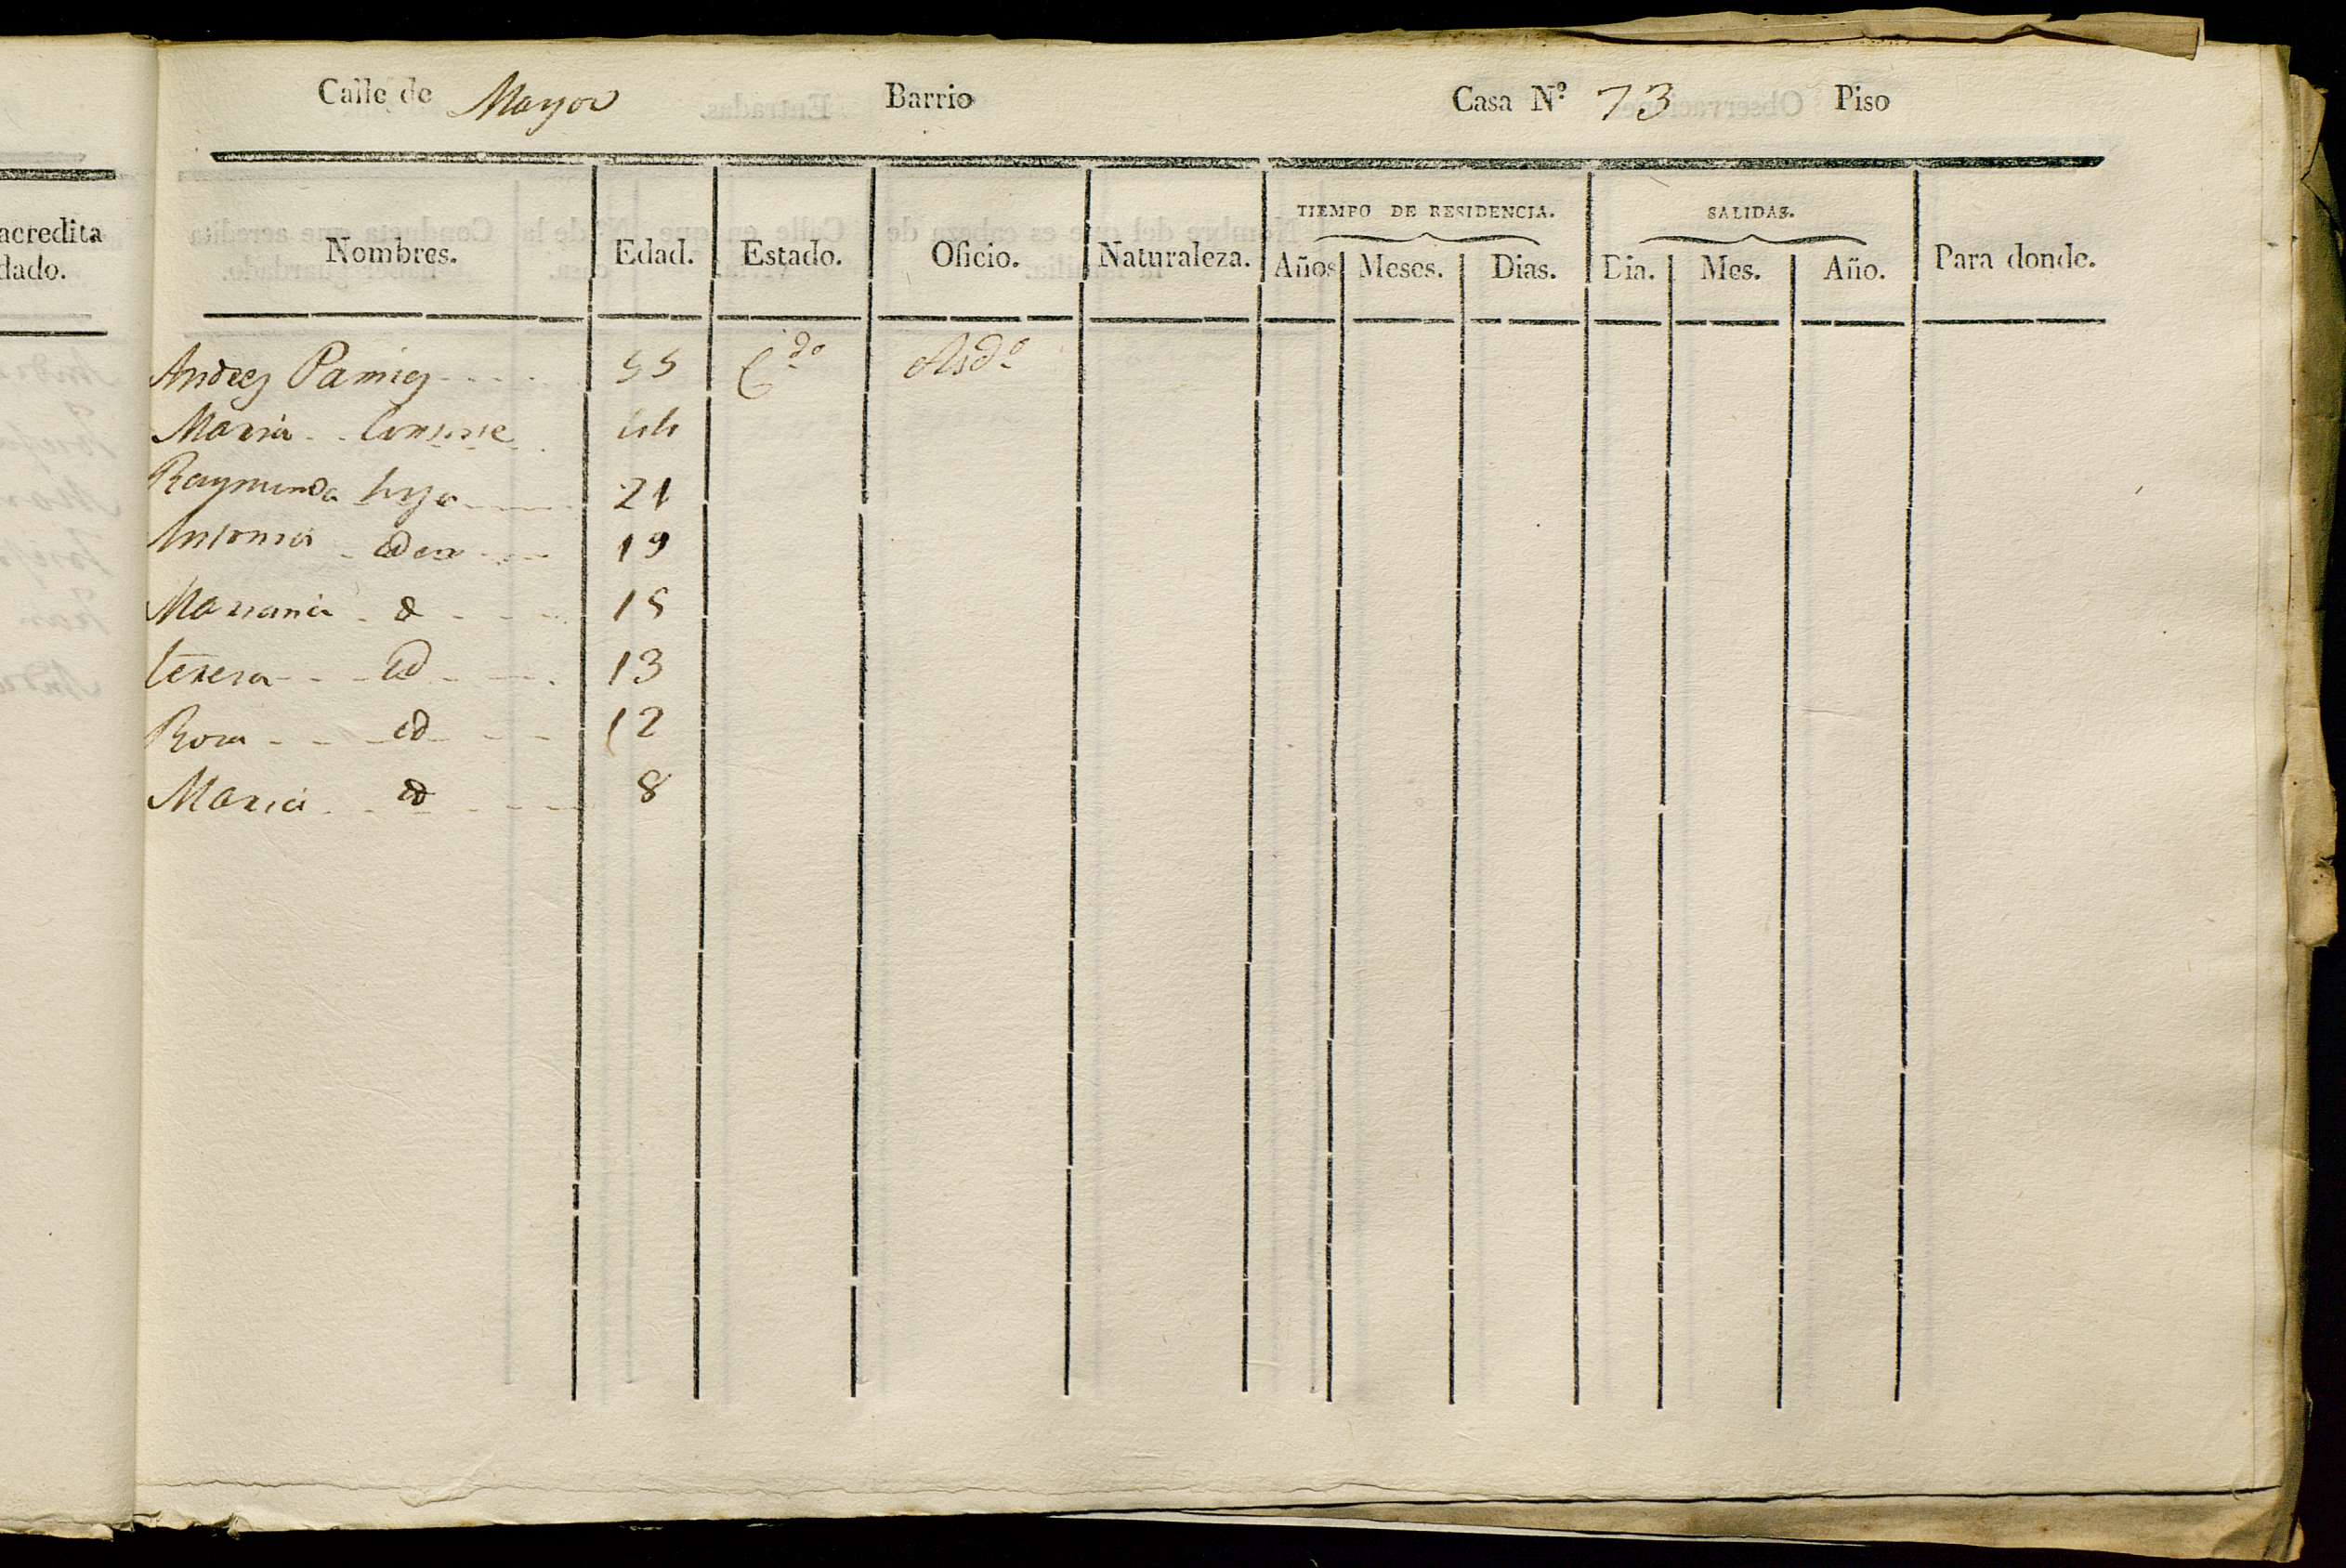 Calle de Mayor Barrio Casa Nº 73 Piso
acredita
dado.
TIEMPO DE RESIDENCIA. SALIDAS.
Nombres. Edad. Estado. Oficio. Naturaleza. Años Meses. Dias. Dia. Mes. Año. Para donde.
Andres Pamies 55 Cdo
Maria Consorte 44
Raymunda hija 21
Antonia iden 19
Mariana id 15
teresa id 13
Rosa id 12
Maria id 8